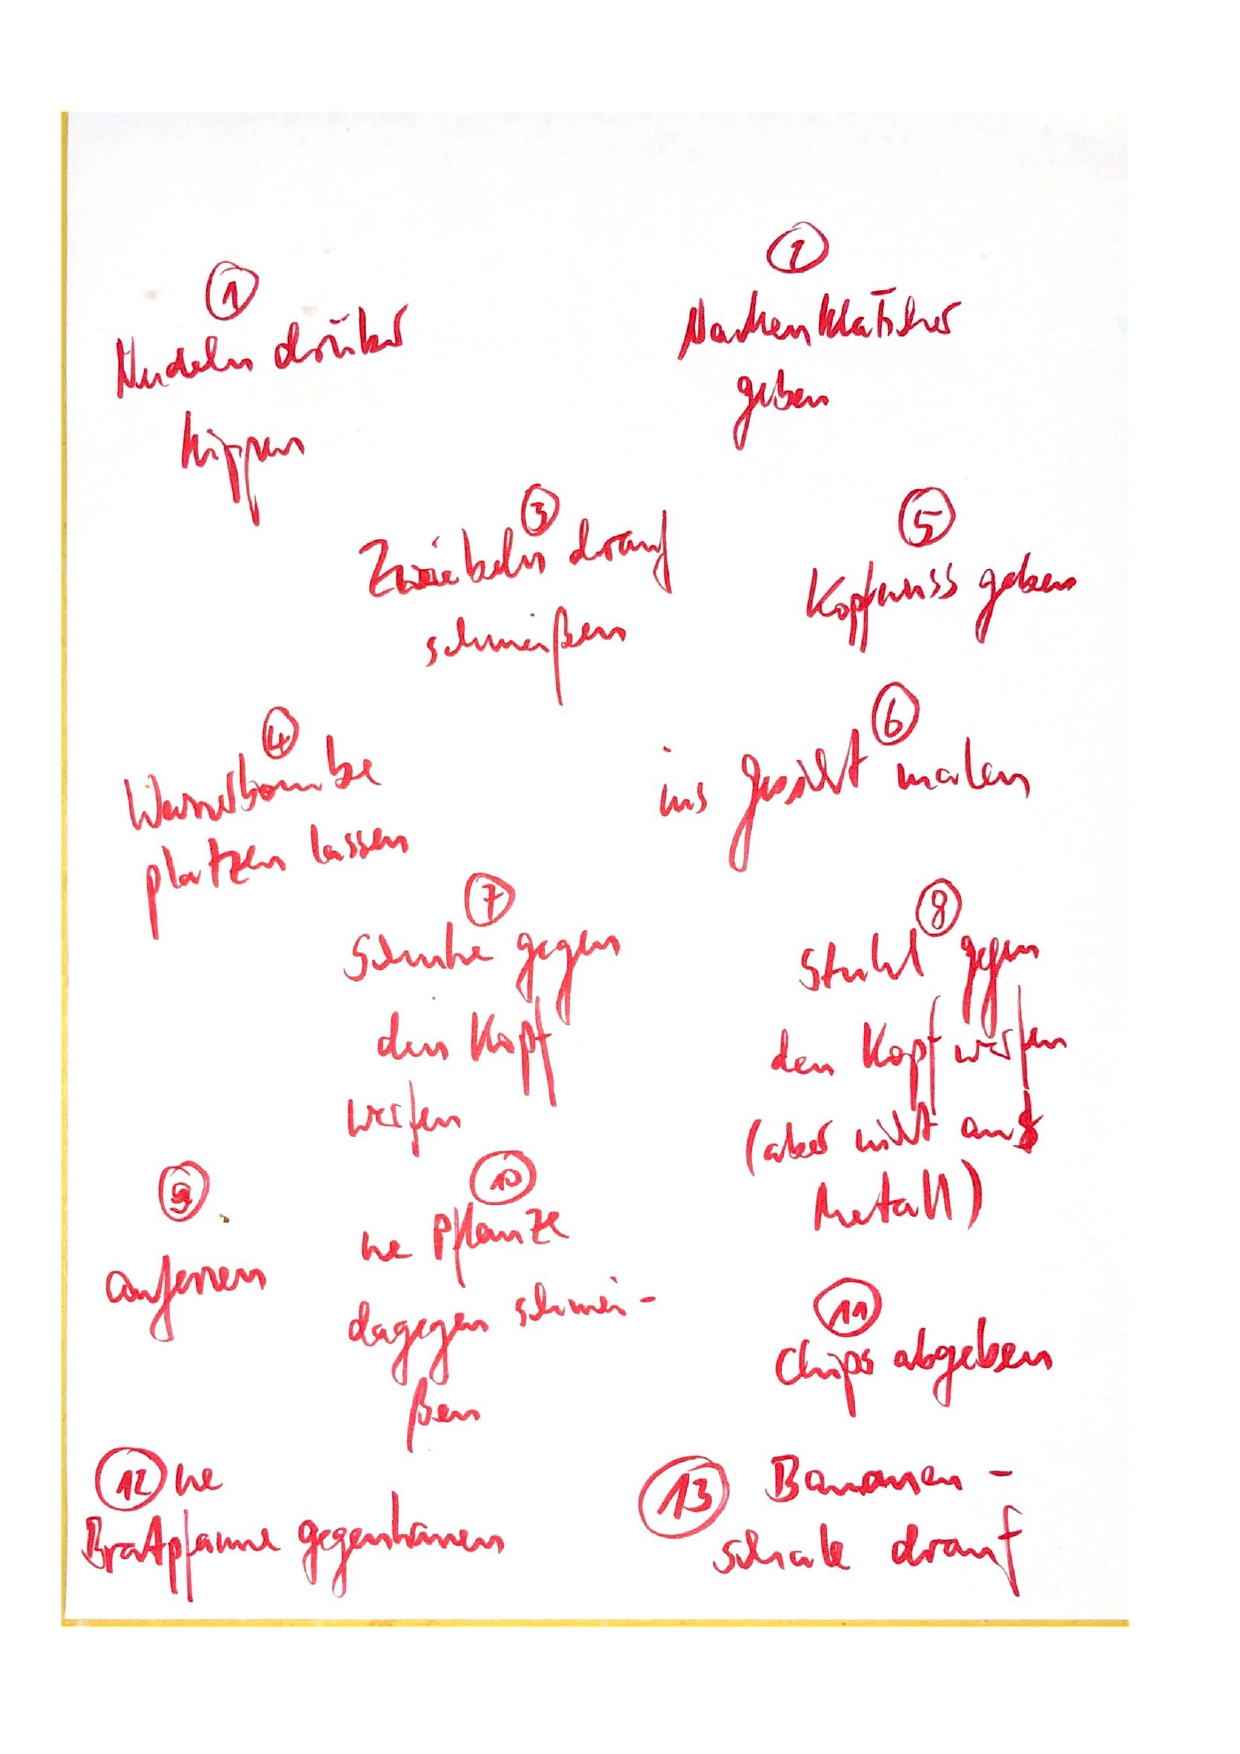 1
Nudeln drüber
kippen
2
Nackenklatscher
geben
3
Zwiebeln drauf
schmeißen
5
Kopfnuss geben
4
Wasserbombe
platzen lassen
6
ins Gesicht malen
7
Schuhe gegen
den Kopf
werfen
8
Stuhl gegen
den Kopf werfen
(aber nicht aus
Metall)
9
aufessen
10
ne Pflanze
dagegen schmei-
ßen
11
Chips abgeben
12 ne
Bratpfanne gegenhauen
13 Bananen-
schale drauf